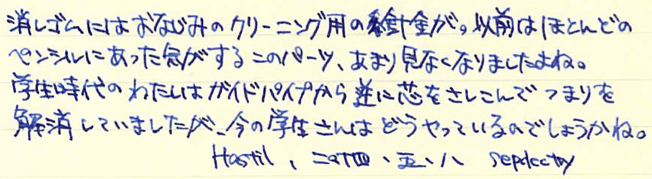 消しゴムにはおなじみのクリーニング用の針金が。以前はほとんどの
ペンシルにあった気がするこのパーツ、あまり見なくなりましたよね。
学生時代のわたしはガイドパイプから逆に芯をさしこんでつまりを
解消していましたが、今の学生さんはどうやっているのでしょうかね。